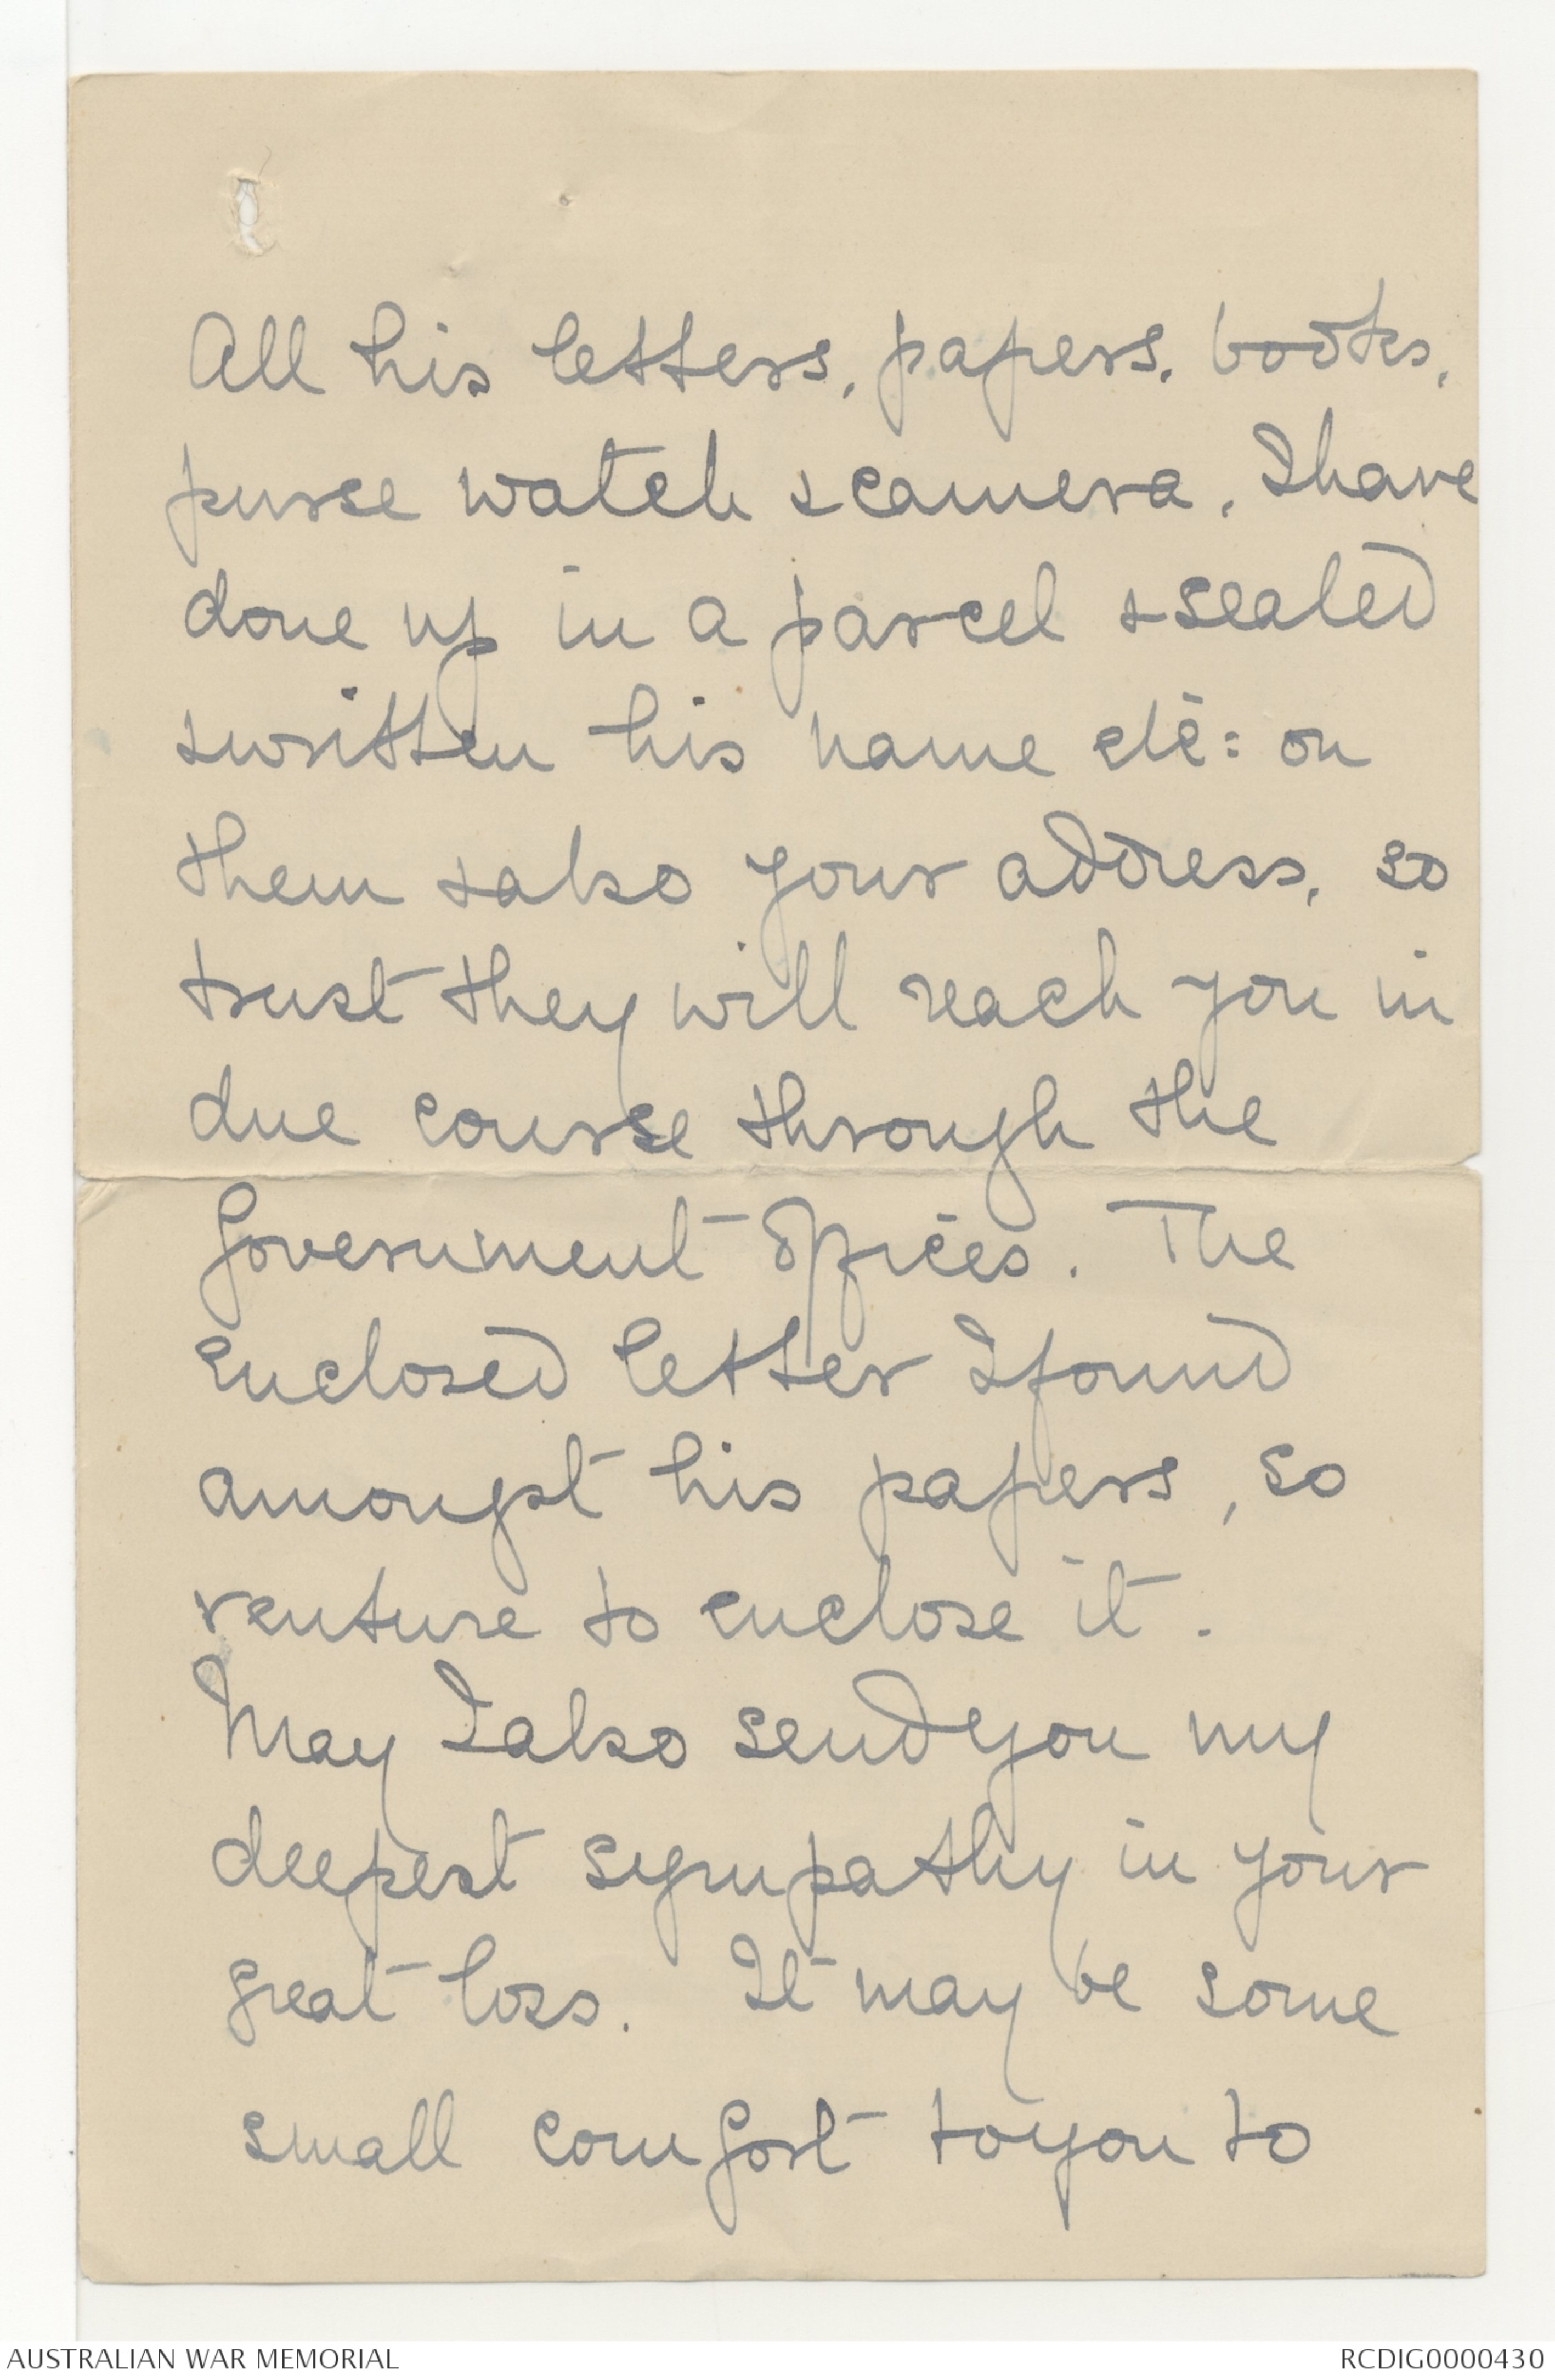 All his letters, papers, books,
purse watch & camera, I have
done up in a parcel & sealed
& written his name etc: on
them & also your address, so
trust they will reach you in
due course through the
Government Offices. The
enclosed letter I found
amongst his papers, so
venture to enclose it.
May I also send you my
deepest sympathy in your
great loss. It may be some
small comfort to you to
AUSTRALIAN WAR MEMORIAL
RCDIG0000430